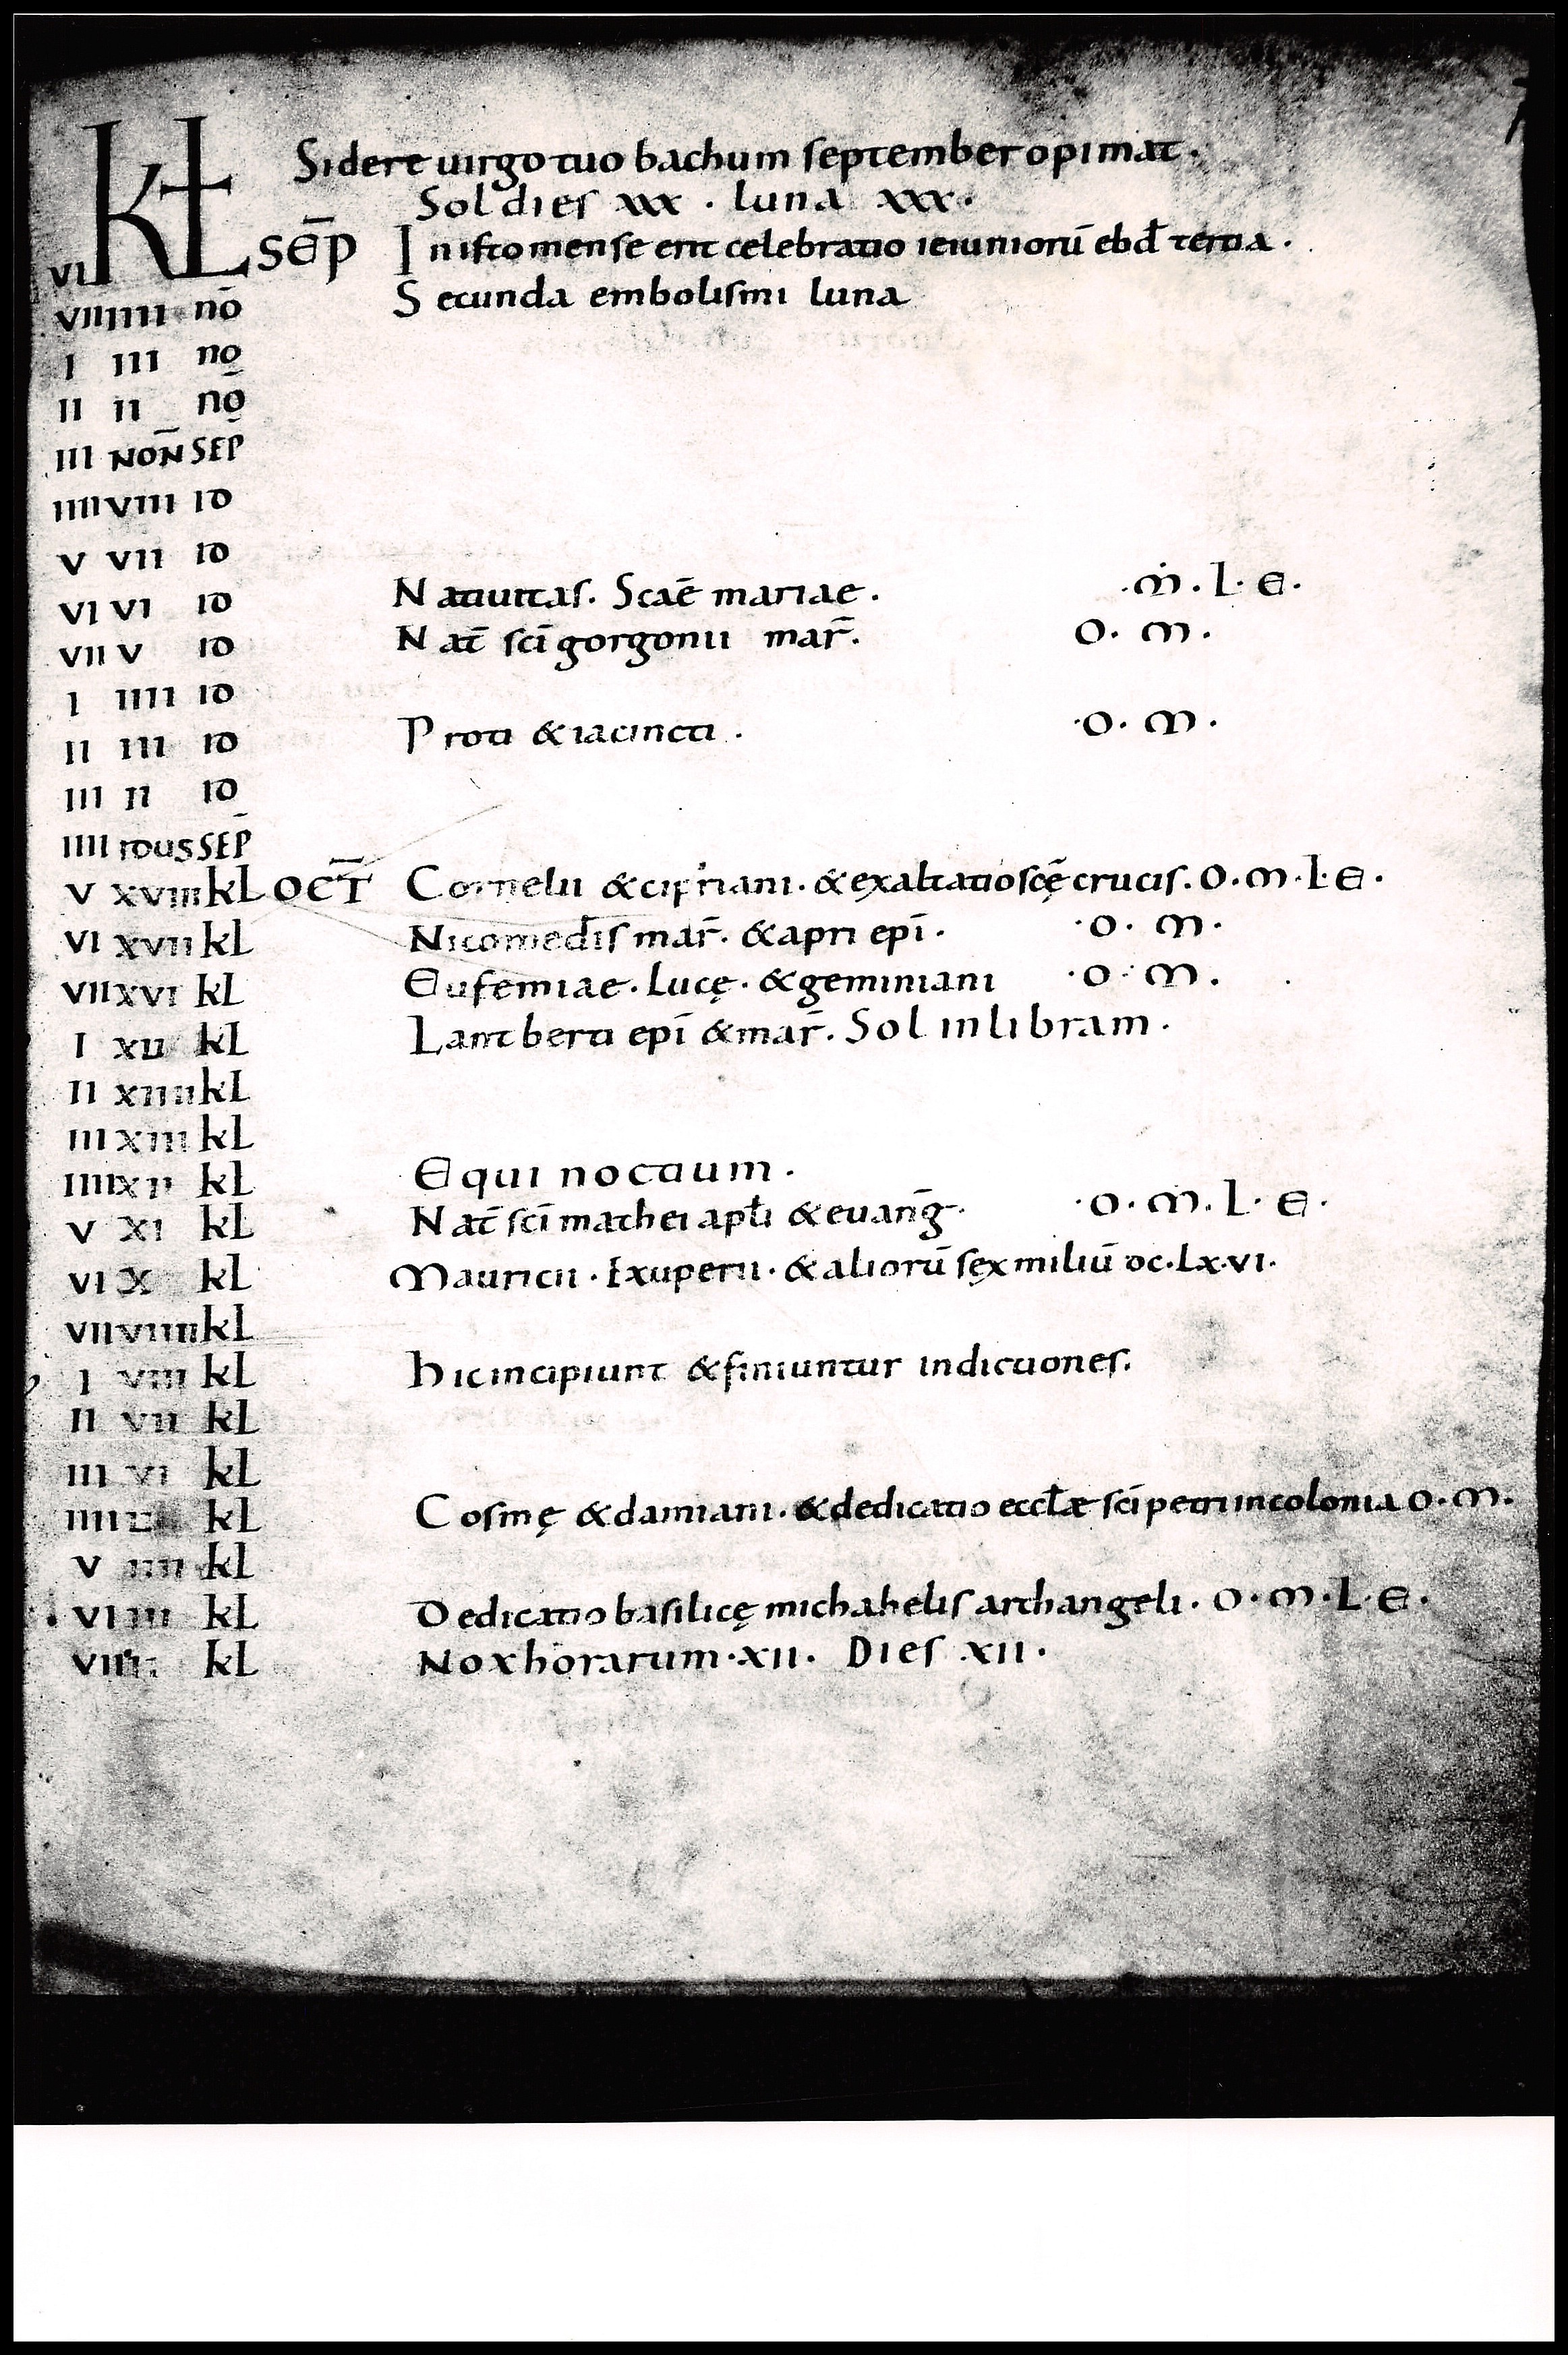 Sidere uirgo tuo bachum september opimat.
Sol dies xxx . luna xxx.
VI KL SEP̄ In isto mense erit celebratio ieiuniorū ebđ tertia .
VII IIII nō Secunda embolismi luna
I III nō
II II nō
III NON̄ SEP̄
IIII VIII ID
V VII ID
VI VI ID Natiuitas. Scaē mariae . .M. L. E.
VII V ID Nat̄ sc̄i gorgonii mar̄. O. M.
I IIII ID
II III ID Proti & iacincti . .O. M.
III II ID
IIII IDUS SEP̄
V XVIIII KL OCT̄ Cornelii & cipriani. & exaltatio sc̄ę crucis. O. M. L. E.
VI XVII KL Nicomedis mar̄. & apri ep̄i . .O. M.
VII XVI KL Eufemiae. Lucę. & geminiani .O. M.
I XU KL Lantberti ep̄i & mar̄. Sol in libram .
II XIIII KL
III XIII KL
IIII XII KL Equinoctium .
V XI KL Nat̄ sc̄i mathei apłi & euanḡ. .O. M. L. E.
VI X KL Mauricii . Exuperii . & aliorū sęx miliū DC.LX.VI.
VII VIIII KL
I VIII KL Hic incipiunt & finiuntur indictiones.
II VII KL
III VI KL
IIII KL Cosmę & damiani. & dedicatio eccłæ sc̄i petri in colonia O. M.
V IIII KL
VI III KL Dedicatio basilicę michahelis archangeli. O. M. L. E.
VII KL Nox horarum .XII. Dies XII .